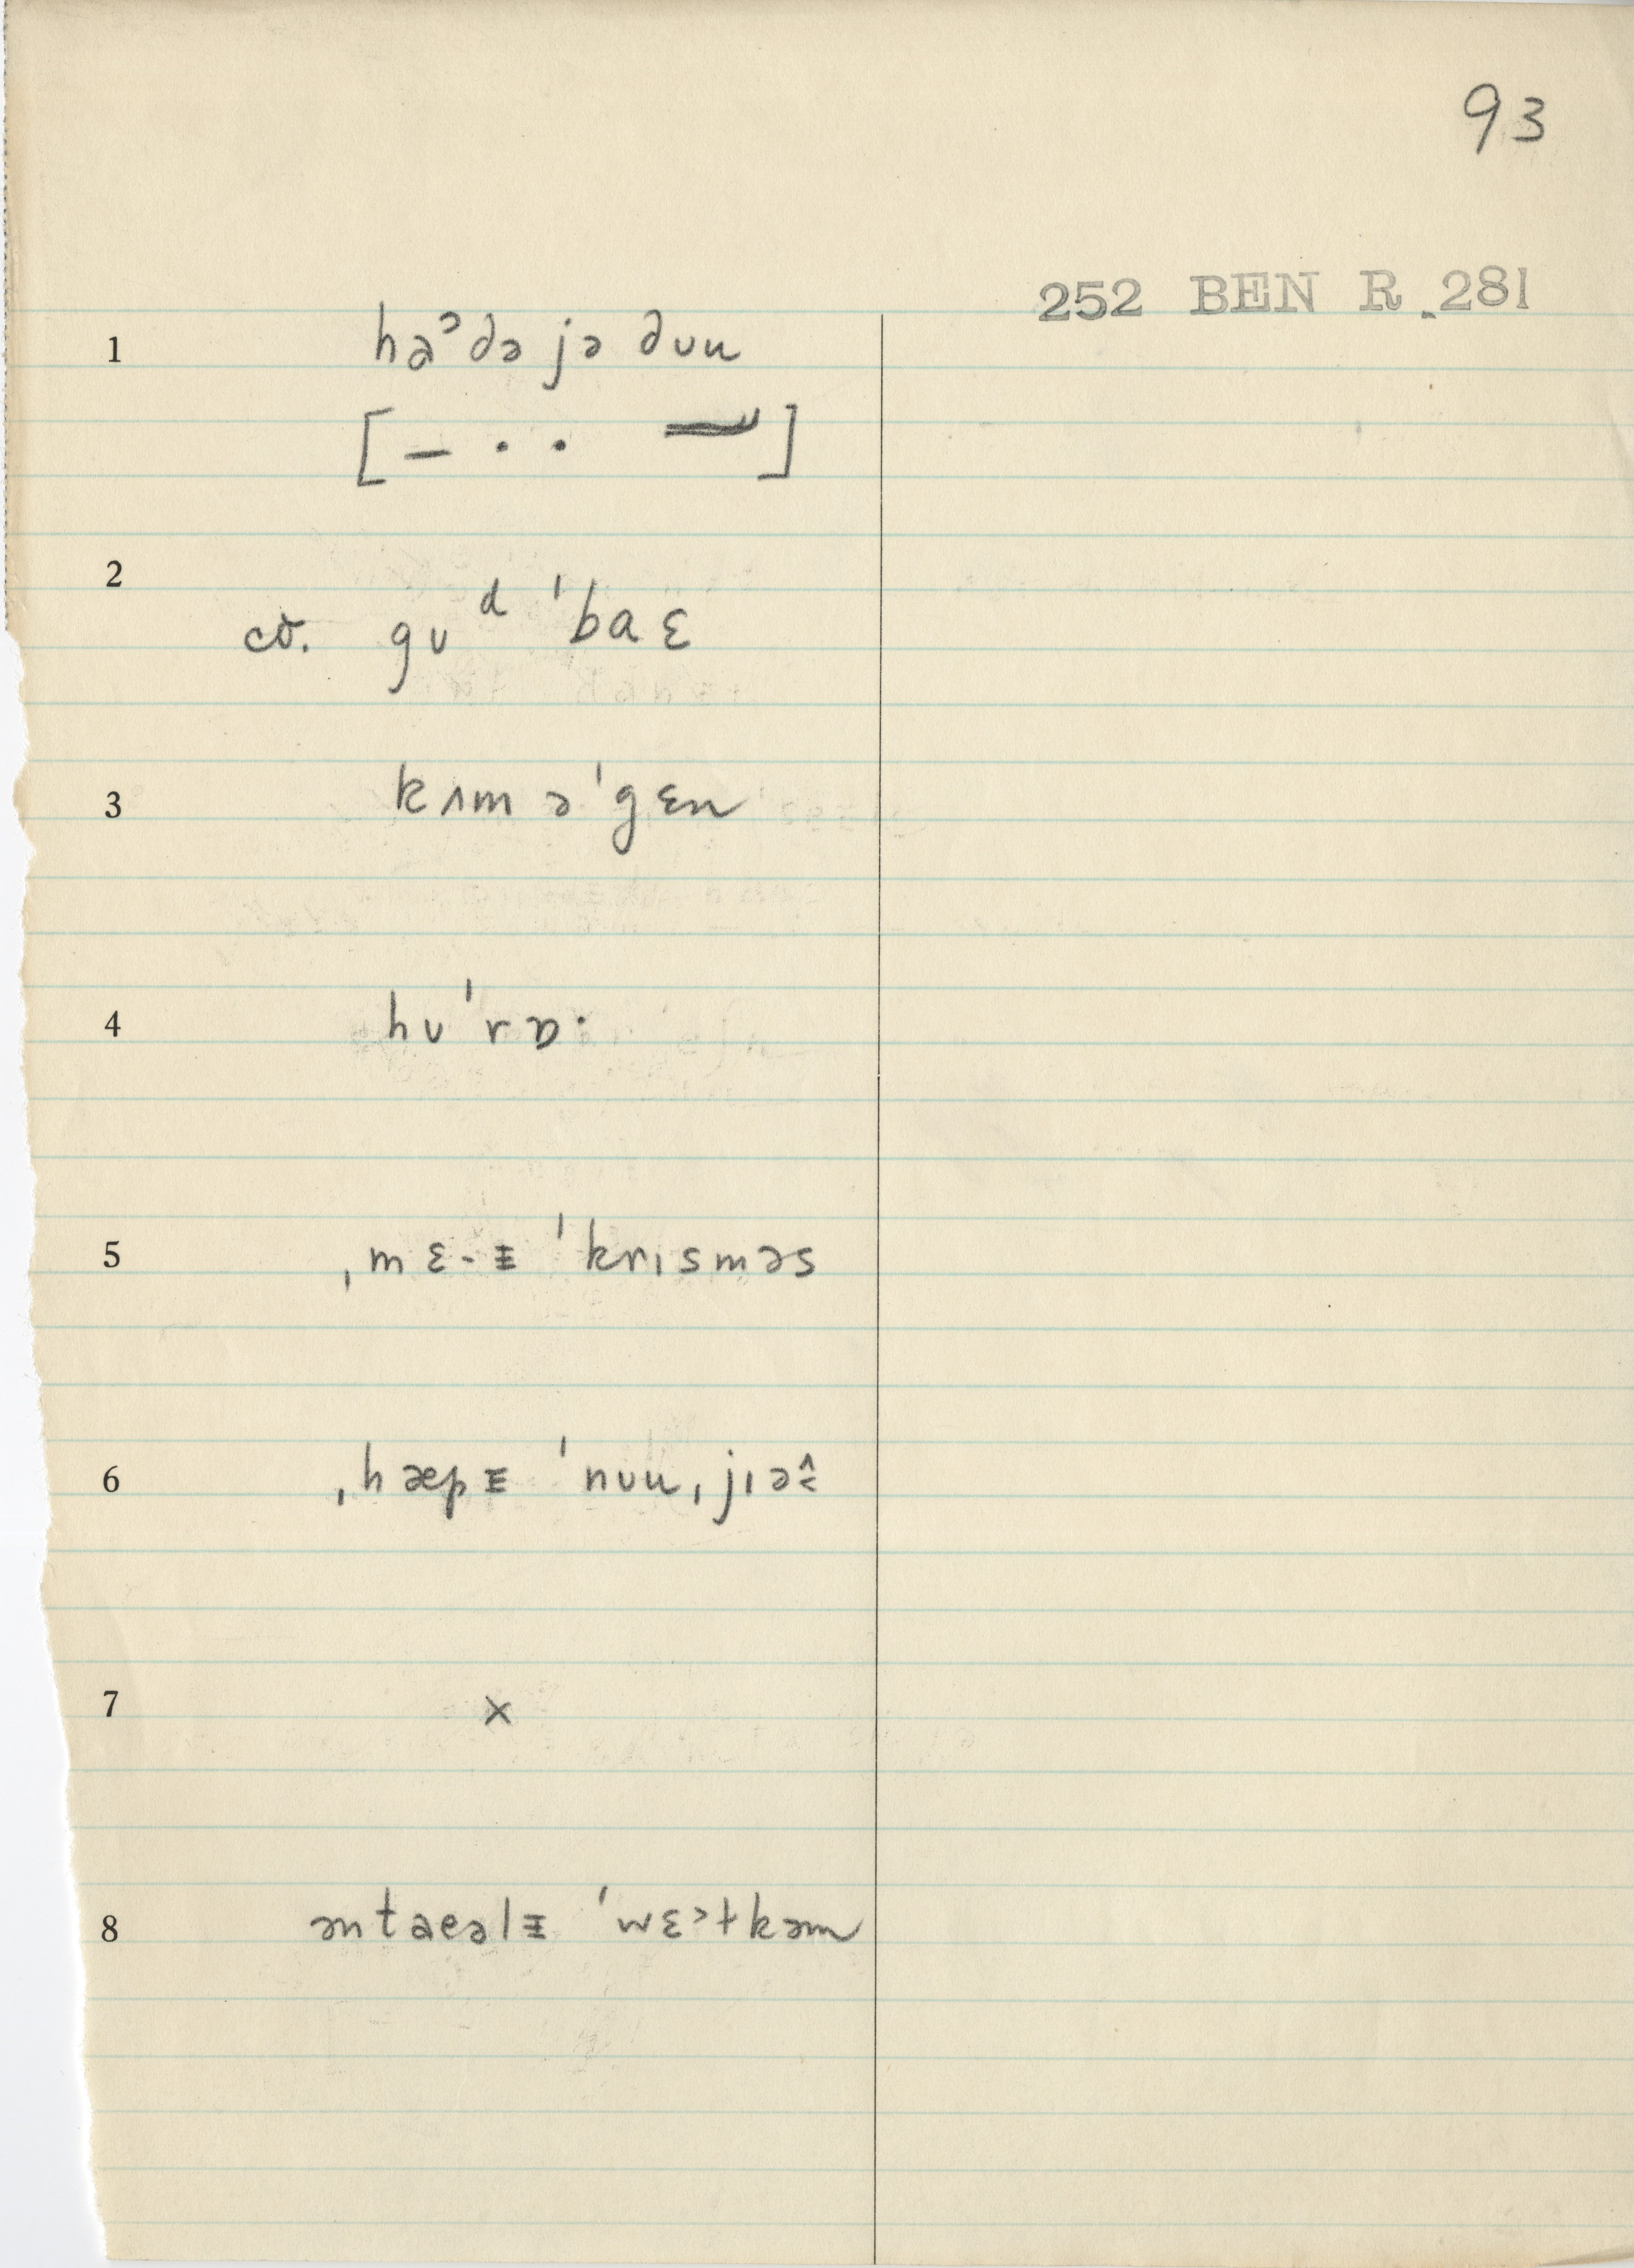 93
252 BEN R 281
1 haᵓdə jə dʊu
[– · · –]
2
cv. gʊᵈ ˈbaɛ
3 kʌm əˈgɛn
4 hʊˈrɒ·
5 ˌmɛ-ᵻ ˈkrɪsməs
6 ˌhæpᵻ ˈnʊuˌjɪə
7 ×
8 əntaeəlᵻ ˈwɛltkəm